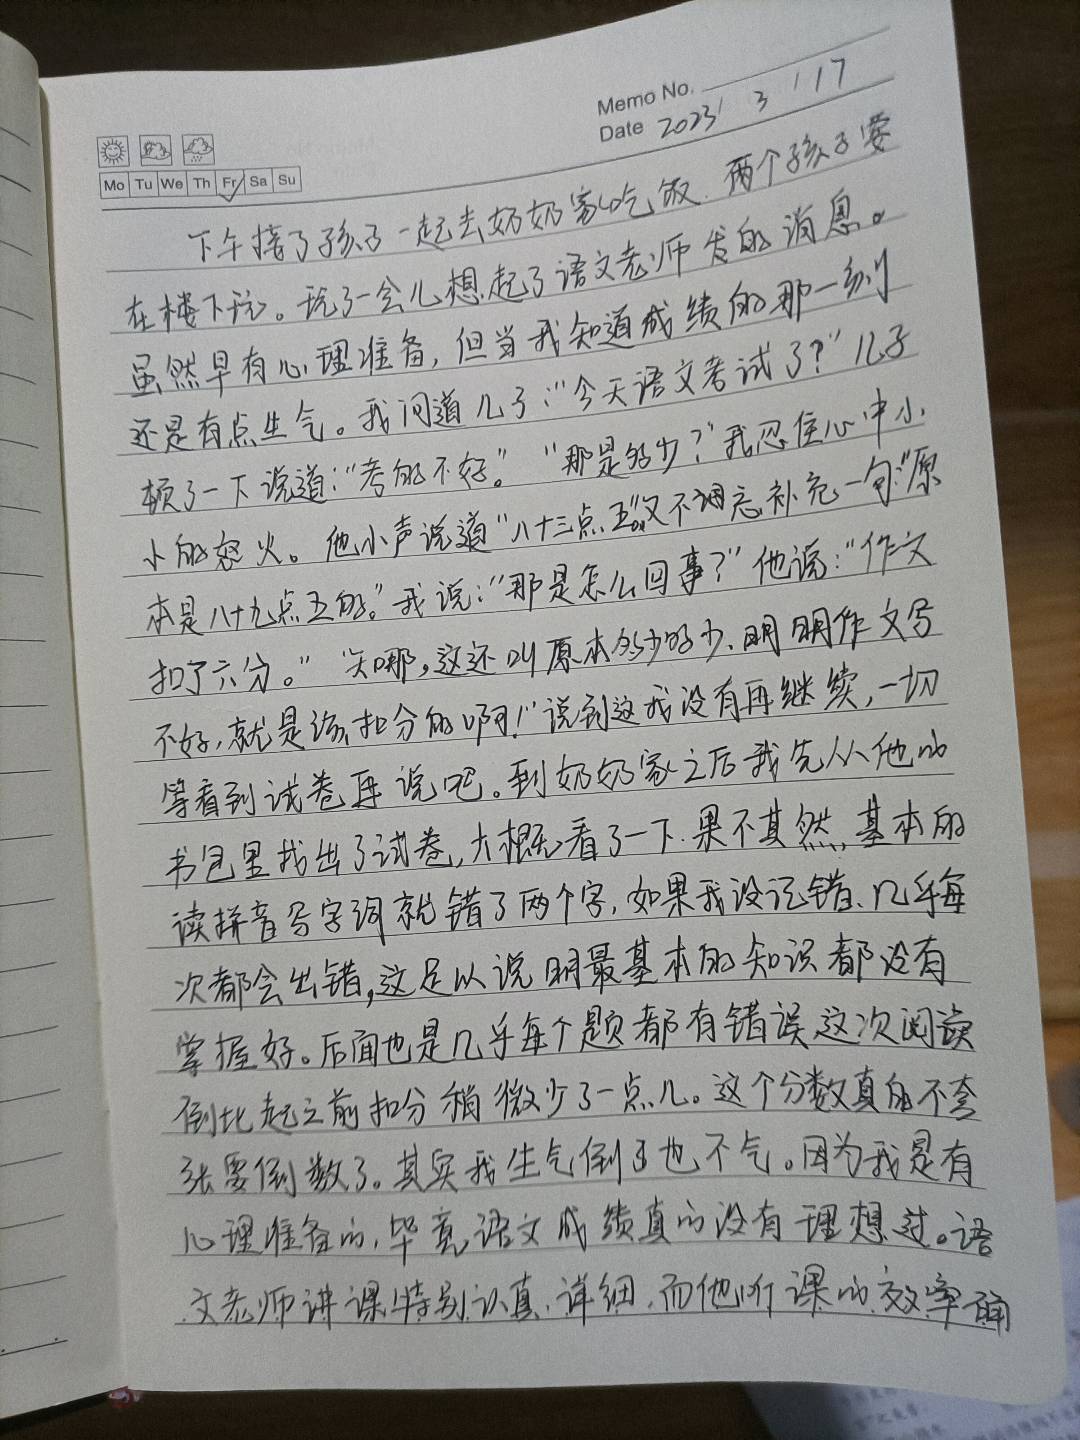 Memo No.
Date 2023 / 3 / 17
Mo Tu We Th Fr Sa Su
下午接了孩子一起去奶奶家吃饭. 两个孩子要
在楼下玩。玩了一会儿想起了语文老师发的消息。
虽然早有心理准备, 但当我知道成绩的那一刻
还是有点生气。我问道儿子:“今天语文考试了?”儿子
顿了一下说道:“考的不好。”“那是多少?”我忍住心中小
小的怒火。他小声说道“八十三点五”又不忘补充一句:“原
本是八十九点五的。”我说:“那是怎么回事?”他说:“作文
扣了六分。”“哪, 这还叫原本多少多少、明明作文写
不好, 就是该扣分的啊!”说到这我没有再继续, 一切
等看到试卷再说吧。到奶奶家之后我先从他的
书包里找出了试卷, 大概看了一下. 果不其然, 基本的
读拼音写字词就错了两个字, 如果我没记错、几乎每
次都会出错, 这足以说明最基本的知识都没有
掌握好。后面也是几乎每个题都有错误 这次阅读
倒比起之前扣分稍微少了一点儿。这个分数真的不夸
张要倒数了。其实我生气倒也不气。因为我是有
心理准备的, 毕竟语文成绩真的没有理想过。语
文老师讲课特别认真、详细, 而他听课的效率确